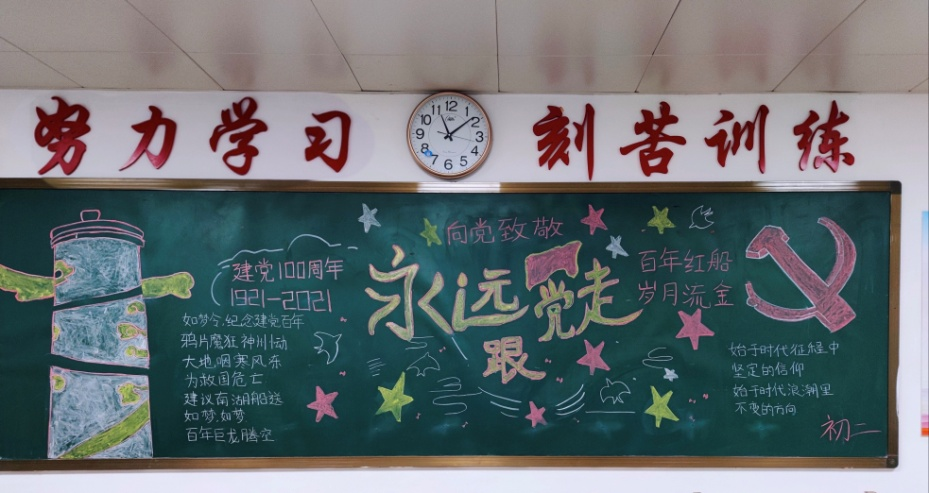 努力学习
刻苦训练
12
1
2
3
4
5
6
7
8
9
10
11
建党100周年
1921-2021
如梦令.纪念建党百年
鸦片魔狂神州动
大地咽寒风冻
为救国危亡
建议南湖船送
如梦.如梦
百年巨龙腾空
向党致敬
永远跟党走
百年红船
岁月流金
始于时代征程中
坚定的信仰
始于时代浪潮里
不变的方向
初二